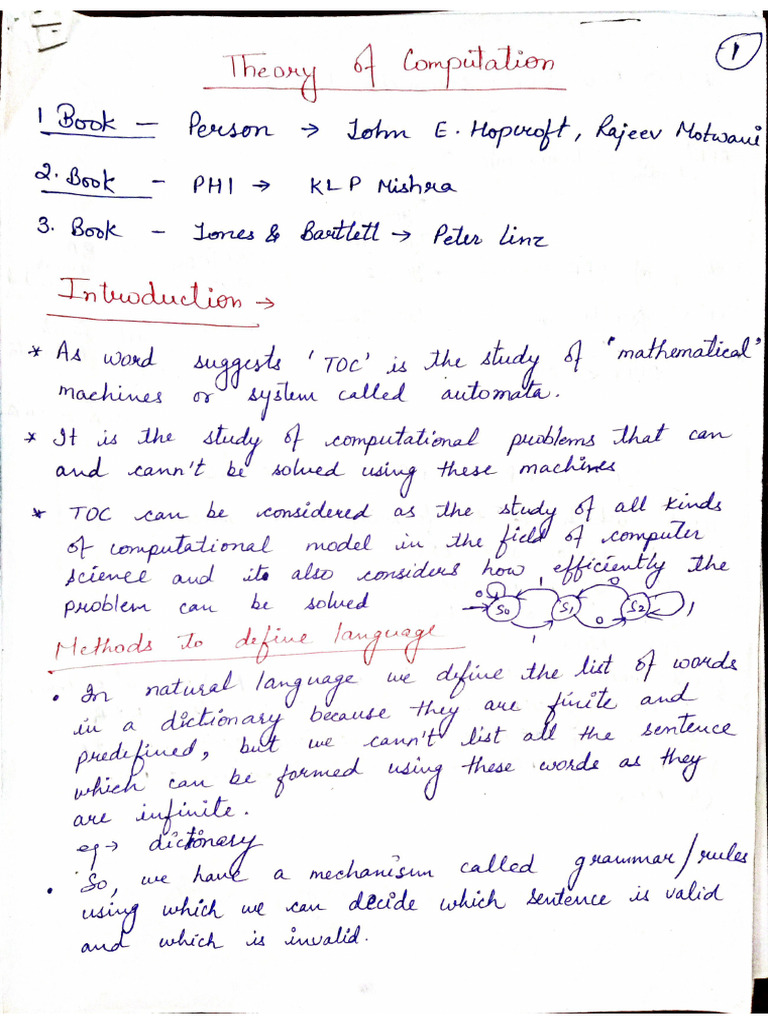 1
Theory of Computation
1 Book – Person → John E. Hopcroft, Rajeev Motwani
2. Book – PHI → KLP Mishra
3. Book – Jones & Bartlett → Peter Linz
Introduction →
* As word suggests 'TOC' is the study of 'mathematical'
machines or system called automata.
* It is the study of computational problems that can
and cann't be solved using these machines
* TOC can be considered as the study of all kinds
of computational model in the field of computer
science and it also considers how efficiently the
problem can be solved
0 1 0
S0 S1 S2 1
1 0
Methods to define language
• In natural language we define the list of words
in a dictionary because they are finite and
predefined, but we cann't list all the sentence
which can be formed using these words as they
are infinite.
eg → dictionary
• So, we have a mechanism called grammar/rules
using which we can decide which sentence is valid
and which is invalid.